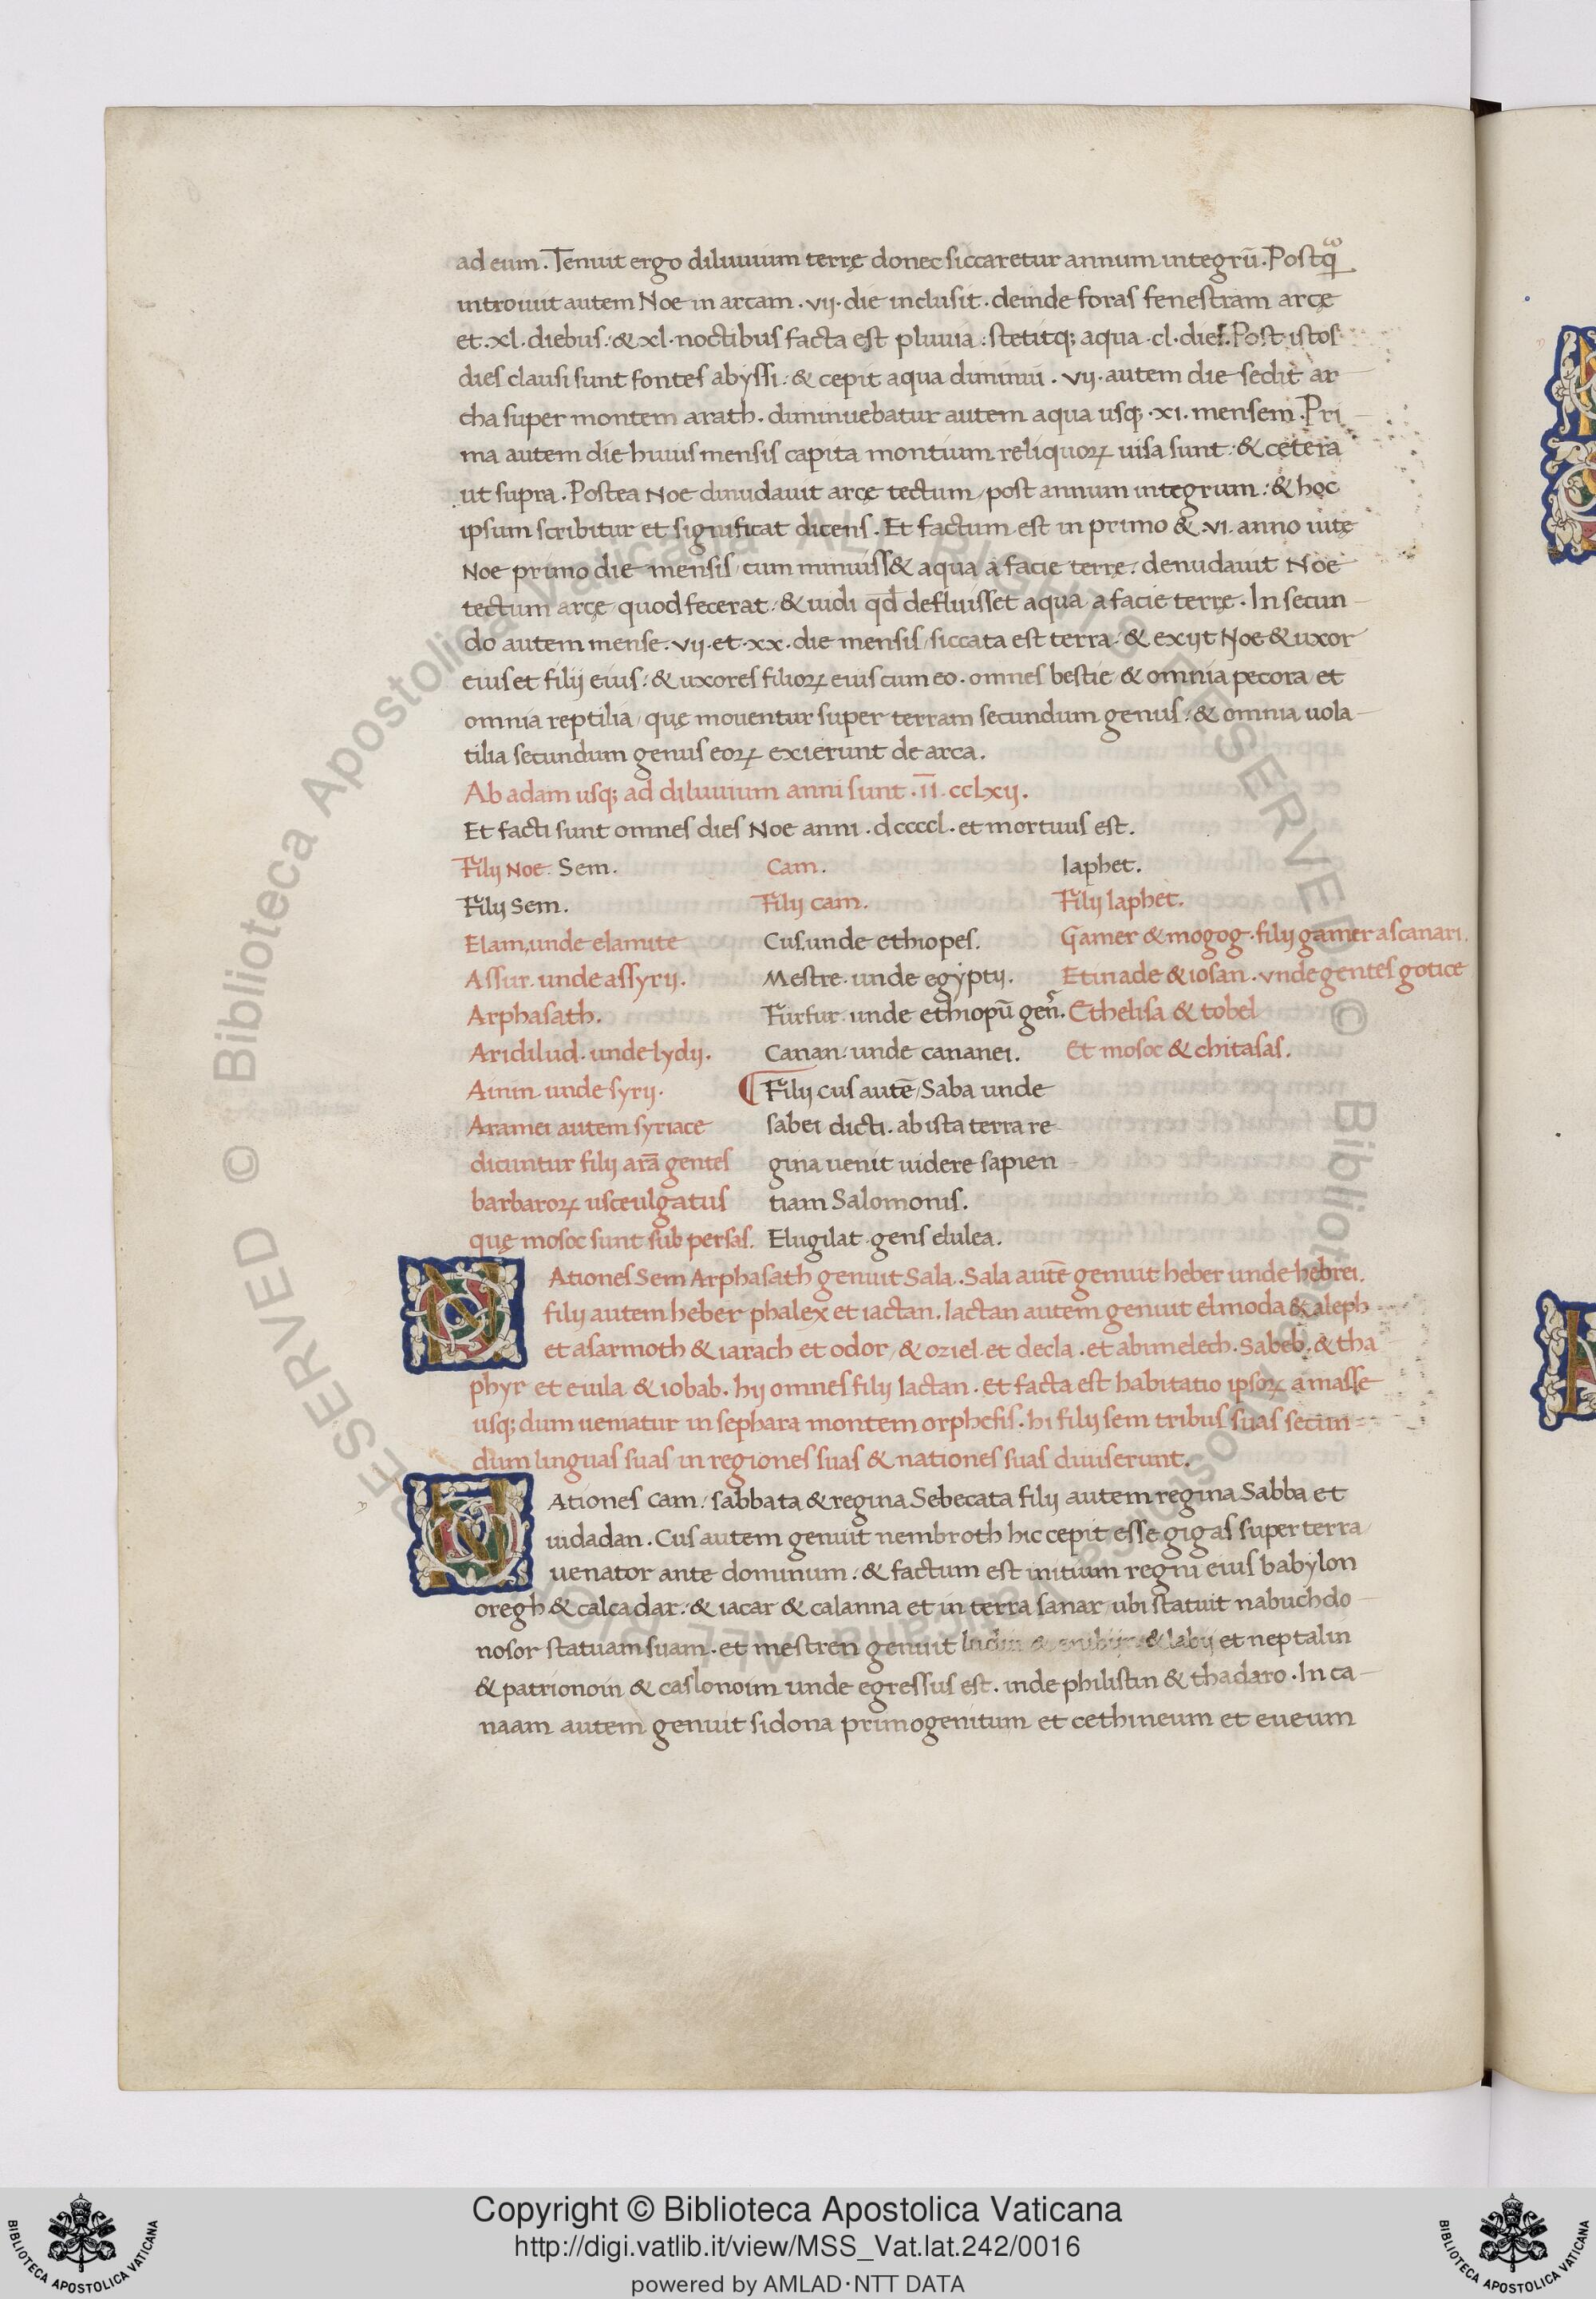 ad eum. Tenuit ergo diluuium terrę donec siccaretur annum integrū. Postq̄
introiuit autem Noe in arcam. vij. die inclusit. deinde foras fenestram arcę
et. xl. diebus: & xl. noctibus facta est pluuia: stetitq; aqua. cl. dies. Post istos
dies clausi sunt fontes abyssi: & cepit aqua diminui. vij. autem die sedit ar
cha super montem arath. diminuebatur autem aqua usq;. xi. mensem. Pri
ma autem die huius mensis capita montium reliquoꝝ uisa sunt: & cętera
ut supra. Postea Noe dinudauit arcę tectum, post annum integrum: & hoc
ipsum scribitur et significat dicens. Et factum est in primo &. vi. anno uitę
Noe primo die mensis, cum minuiss& aqua a facie terrę: denudauit Noe
tectum arcę quod fecerat: & uidi qd̄ defluisset aqua a facie terrę. In secun
do autem mense. vij. et. xx. die mensis, siccata est terra: & exijt Noe & uxor
eius et filij eius: & uxores filioꝝ eius cum eo. omnes bestie & omnia pecora et
omnia reptilia, quę mouentur super terram secundum genus: & omnia uola
tilia secundum genus eoꝝ exierunt de arca.
Ab adam usq; ad diluuium anni sunt. īī. cclxij.
Et facti sunt omnes dies Noe anni. dccccl. et mortuus est.
Filij Noe. Sem. Cam. Iaphet.
Filij Sem. Filij cam. Filij Iaphet.
Elam, unde elamite Cus. unde ethiopes. Gamer & mogog. filij gamer ascanari.
Assur. unde assyrij. Mestre. unde egyptij. Etinade & iosan. vnde gentes gotice
Arphasath. Furfur. unde ethiopū gen̄. Ethelisa & tobel
Aridilud. unde lydij. Canan: unde cananei. Et mosoc & chitasas.
Ainin. unde syrij. Filij cus autē, Saba unde
Aramei autem syriace sabei dicti. ab ista terra re
dicuntur filij arā gentes gina uenit uidere sapien
barbaroꝝ usceulgatus tiam Salomonis.
quę mosoc sunt sub persas. Elugilat. gens elulea.
NAtiones Sem Arphasath genuit Sala. Sala autē genuit heber unde hebrei.
filij autem heber phalex et iactan. Iactan autem genuit elmoda & aleph
et asarmoth & iarach et odor, & oziel. et decla. et abimelech. Sabeb. & tha
phyr et euila & iobab. hij omnes filij Iactan. et facta est habitatio ipsoꝝ a masse
usq; dum ueniatur in sephara montem orphefis. hi filij sem tribus suas secun
dum linguas suas in regiones suas & nationes suas diuiserunt.
NAtiones Cam: sabbata & regina Sebecata filij autem regina Sabba et
iudadan. Cus autem genuit nembroth hic cepit esse gigas super terra
uenator ante dominum: & factum est initium regni eius babylon
oregh & calcadar: & iacar & calanna et in terra sanar, ubi statuit nabuchdo
nosor statuam suam. et mestren genuit & labij et neptalin
& patrionoin & caslonoim unde egressus est. inde philistin & thadaro. In ca
naam autem genuit sidona primogenitum et cethineum et eueum
Copyright © Biblioteca Apostolica Vaticana
http://digi.vatlib.it/view/MSS_Vat.lat.242/0016
powered by AMLAD·NTT DATA